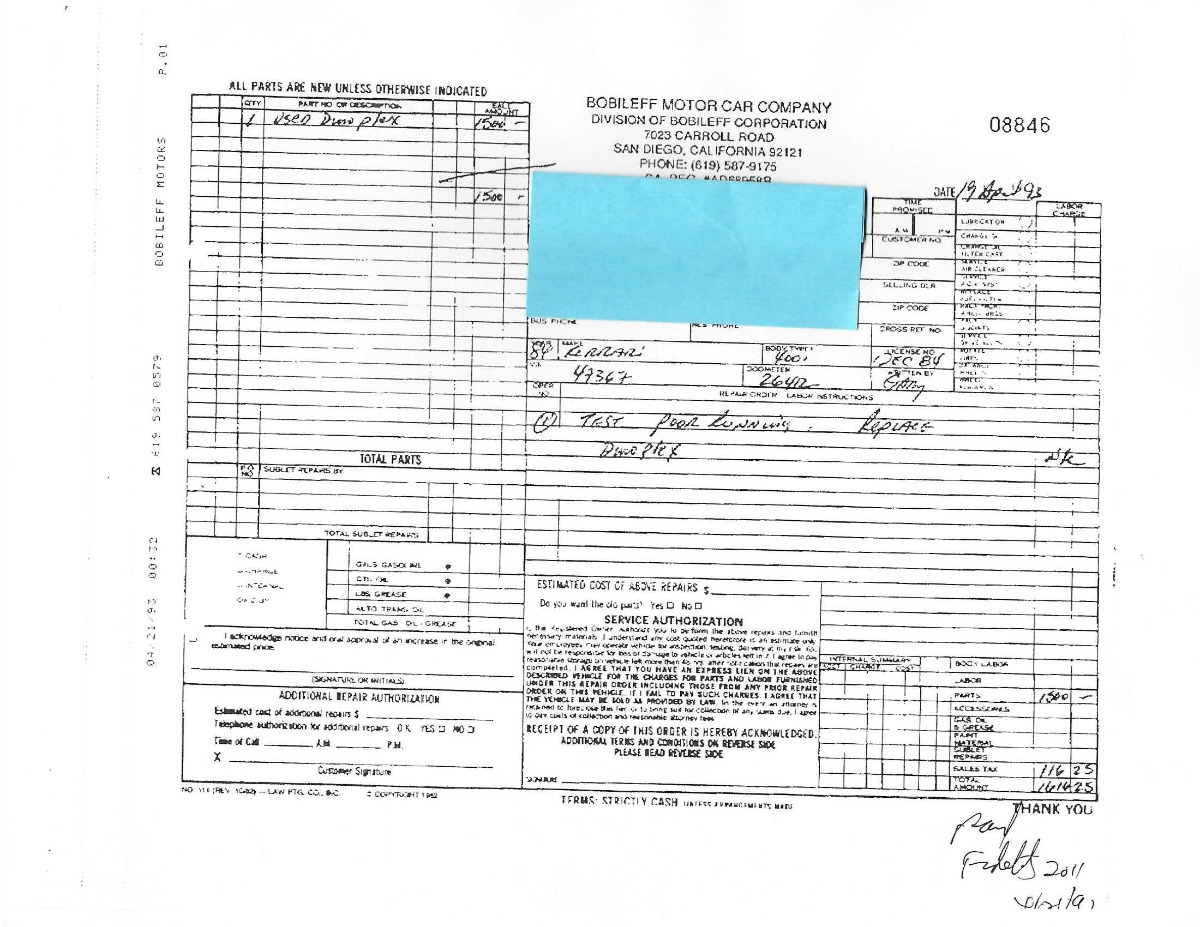 P.01
BOBILEFF MOTORS
619 587 0579
04/21/93 00:32
ALL PARTS ARE NEW UNLESS OTHERWISE INDICATED
QTY PART NO OR DESCRIPTION SALE AMOUNT
1 USED Dinoplex 1500 -
1500 -
TOTAL PARTS
P.O. NO SUBLET REPAIRS BY
TOTAL SUBLET REPAIRS
GALS. GASOLINE @
QTS. OIL @
LBS. GREASE @
AUTO TRANS. OIL
TOTAL GAS - OIL - GREASE
I acknowledge notice and oral approval of an increase in the original
estimated price.
(SIGNATURE OR INITIALS)
ADDITIONAL REPAIR AUTHORIZATION
Estimated cost of additional repairs $
Telephone authorization for additional repairs O.K. YES □ NO □
Time of Call A.M. P.M.
X
Customer Signature
BOBILEFF MOTOR CAR COMPANY
DIVISION OF BOBILEFF CORPORATION
7023 CARROLL ROAD
SAN DIEGO, CALIFORNIA 92121
PHONE: (619) 587-9175
08846
DATE 19 April 93
TIME PROMISED
A.M. P.M.
CUSTOMER NO.
ZIP CODE
SELLING DLR
ZIP CODE
CROSS REF. NO.
LABOR CHARGE
LUBRICATION
CHANGE OIL
AIR CLEANER
BUS. PHONE RES. PHONE
YEAR 84 MAKE FERRARI BODY TYPE 400i LICENSE NO. DEC 84
47367 ODOMETER WRITTEN BY Gary
OPER NO. REPAIR ORDER - LABOR INSTRUCTIONS
① TEST POOR RUNNING. REPLACE
Dinoplex N/C
ESTIMATED COST OF ABOVE REPAIRS $
Do you want the old parts? Yes □ No □
SERVICE AUTHORIZATION
I, the Registered Owner, authorize you to perform the above repairs and furnish
necessary materials. I understand any cost quoted heretofore is an estimate only.
Your employees may operate vehicle for inspection, testing, delivery at my risk. You
will not be responsible for loss or damage to vehicle or articles left in it. I agree to pay
reasonable storage on vehicle left more than 48 hrs. after notification that repairs are
completed. I AGREE THAT YOU HAVE AN EXPRESS LIEN ON THE ABOVE
DESCRIBED VEHICLE FOR THE CHARGES FOR PARTS AND LABOR FURNISHED
UNDER THIS REPAIR ORDER INCLUDING THOSE FROM ANY PRIOR REPAIR
ORDER ON THIS VEHICLE. IF I FAIL TO PAY SUCH CHARGES, I AGREE THAT
THE VEHICLE MAY BE SOLD AS PROVIDED BY LAW. In the event an attorney is
retained to foreclose this lien or to bring suit for collection of any sums due, I agree
to pay costs of collection and reasonable attorney fees.
RECEIPT OF A COPY OF THIS ORDER IS HEREBY ACKNOWLEDGED.
ADDITIONAL TERMS AND CONDITIONS ON REVERSE SIDE
PLEASE READ REVERSE SIDE
SIGNATURE
INTERNAL SUMMARY
COST CHARGE COST
BODY LABOR
LABOR
PARTS 1500 -
ACCESSORIES
GAS, OIL & GREASE
PAINT MATERIAL
SUBLET REPAIRS
SALES TAX 116 25
TOTAL AMOUNT 1616 25
NO. 114 (REV. 10/82) — LAW PTG. CO., INC. © COPYRIGHT 1982
TERMS: STRICTLY CASH UNLESS ARRANGEMENTS MADE
THANK YOU
2011